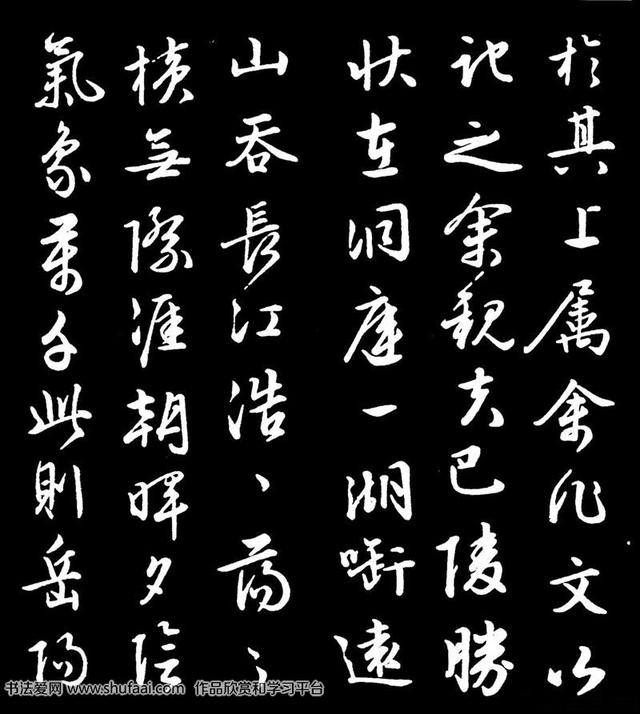 於其上属余作文以
記之余觀夫巴陵勝
狀在洞庭一湖銜遠
山吞長江浩〻蕩〻
橫無際涯朝暉夕陰
氣象萬千此則岳陽
书法爱网 www.shufaai.com 作品欣赏和学习平台